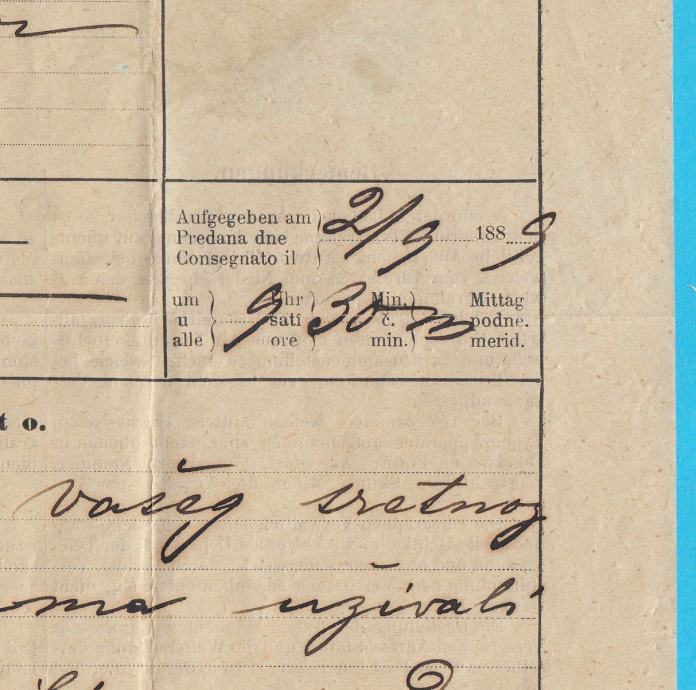 Aufgegeben am 2/9 1889
Predana dne
Consegnato il
um 9 Uhr 30 Min. m Mittag
u satî č. podne.
alle ore min. merid.
t o.
vašeg sretnog
ma uživali